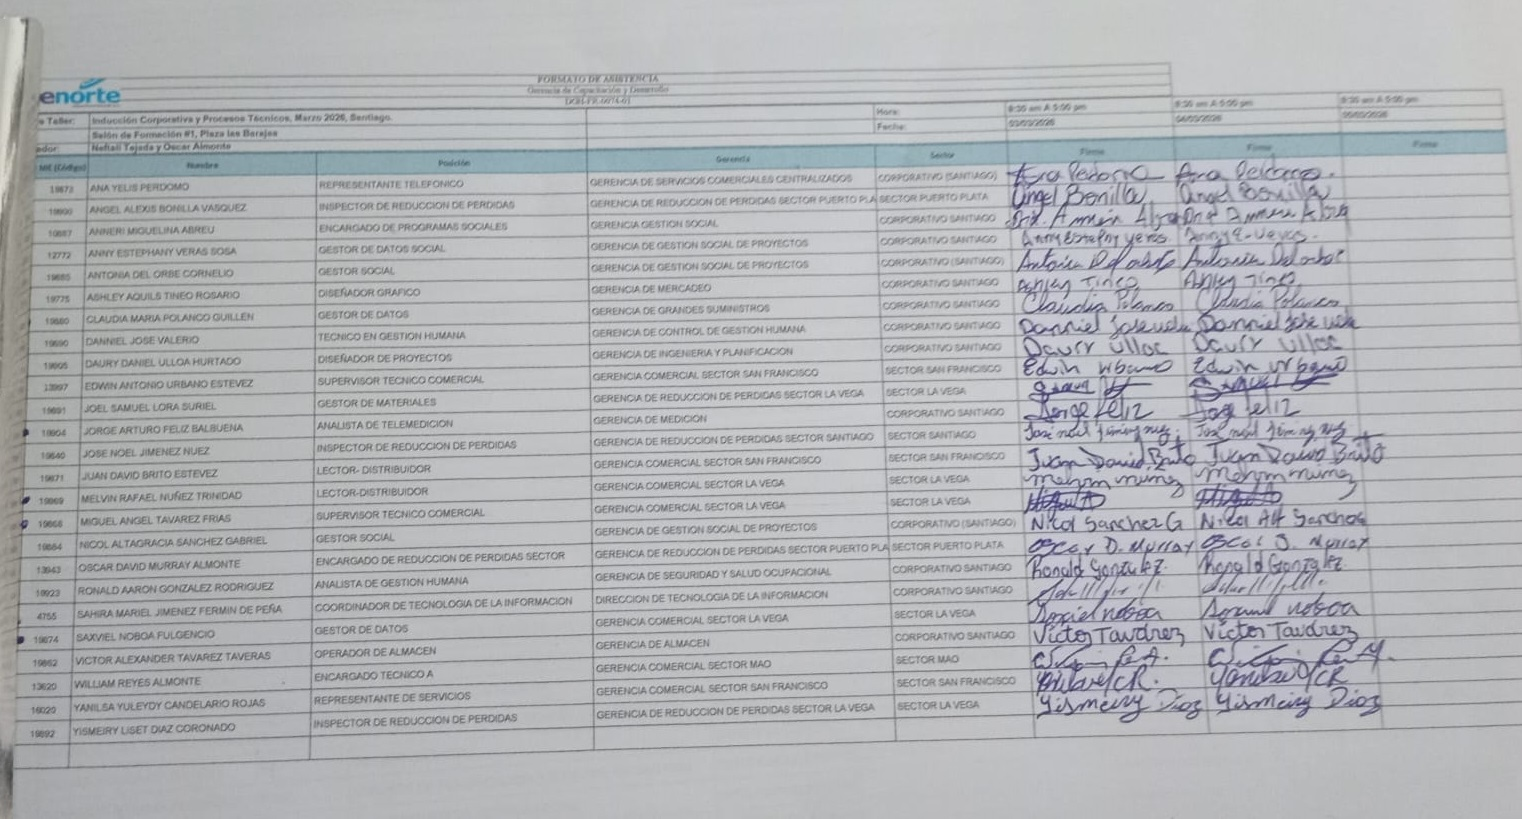 enorte
FORMATO DE ASISTENCIA
Gerencia de Capacitación y Desarrollo
Taller: Inducción Corporativa y Procesos Técnicos, Marzo 2026, Santiago. Hora: 8:30 am A 5:00 pm 8:30 am A 5:00 pm 8:30 am A 5:00 pm
Salón de Formación #1, Plaza las Barajas Fecha: 03/03/2026 04/03/2026 05/03/2026
ador: Neftali Tejada y Oscar Almonte
(Código) Nombre Posición Gerencia Sector Firma Firma Firma
ANA YELIS PERDOMO REPRESENTANTE TELEFONICO GERENCIA DE SERVICIOS COMERCIALES CENTRALIZADOS CORPORATIVO (SANTIAGO)
ANGEL ALEXIS BONILLA VASQUEZ INSPECTOR DE REDUCCION DE PERDIDAS GERENCIA DE REDUCCION DE PERDIDAS SECTOR PUERTO PLA SECTOR PUERTO PLATA Angel Bonilla Angel Bonilla
ANNERI MIGUELINA ABREU ENCARGADO DE PROGRAMAS SOCIALES GERENCIA GESTION SOCIAL CORPORATIVO SANTIAGO
12772 ANNY ESTEPHANY VERAS SOSA GESTOR DE DATOS SOCIAL GERENCIA DE GESTION SOCIAL DE PROYECTOS CORPORATIVO SANTIAGO
ANTONIA DEL ORBE CORNELIO GESTOR SOCIAL GERENCIA DE GESTION SOCIAL DE PROYECTOS CORPORATIVO (SANTIAGO)
19775 ASHLEY AQUILS TINEO ROSARIO DISEÑADOR GRAFICO GERENCIA DE MERCADEO CORPORATIVO SANTIAGO
CLAUDIA MARIA POLANCO GUILLEN GESTOR DE DATOS GERENCIA DE GRANDES SUMINISTROS CORPORATIVO SANTIAGO Claudia Polanco Claudia Polanco
DANNIEL JOSE VALERIO TECNICO EN GESTION HUMANA GERENCIA DE CONTROL DE GESTION HUMANA CORPORATIVO SANTIAGO
DAURY DANIEL ULLOA HURTADO DISEÑADOR DE PROYECTOS GERENCIA DE INGENIERIA Y PLANIFICACION CORPORATIVO SANTIAGO Daury Ulloa Daury Ulloa
EDWIN ANTONIO URBANO ESTEVEZ SUPERVISOR TECNICO COMERCIAL GERENCIA COMERCIAL SECTOR SAN FRANCISCO SECTOR SAN FRANCISCO Edwin Urbano Edwin Urbano
JOEL SAMUEL LORA SURIEL GESTOR DE MATERIALES GERENCIA DE REDUCCION DE PERDIDAS SECTOR LA VEGA SECTOR LA VEGA
JORGE ARTURO FELIZ BALBUENA ANALISTA DE TELEMEDICION GERENCIA DE MEDICIÓN CORPORATIVO SANTIAGO Jorge Feliz Jorge Feliz
JOSE NOEL JIMENEZ NUEZ INSPECTOR DE REDUCCION DE PERDIDAS GERENCIA DE REDUCCION DE PERDIDAS SECTOR SANTIAGO SECTOR SANTIAGO
19871 JUAN DAVID BRITO ESTEVEZ LECTOR- DISTRIBUIDOR GERENCIA COMERCIAL SECTOR SAN FRANCISCO SECTOR SAN FRANCISCO Juan David Brito Juan David Brito
19869 MELVIN RAFAEL NUÑEZ TRINIDAD LECTOR-DISTRIBUIDOR GERENCIA COMERCIAL SECTOR LA VEGA SECTOR LA VEGA
19868 MIGUEL ANGEL TAVAREZ FRIAS SUPERVISOR TECNICO COMERCIAL GERENCIA COMERCIAL SECTOR LA VEGA SECTOR LA VEGA
NICOL ALTAGRACIA SANCHEZ GABRIEL GESTOR SOCIAL GERENCIA DE GESTION SOCIAL DE PROYECTOS CORPORATIVO (SANTIAGO) Nicol Sanchez G Nicol Alt Sanchez
OSCAR DAVID MURRAY ALMONTE ENCARGADO DE REDUCCION DE PERDIDAS SECTOR GERENCIA DE REDUCCION DE PERDIDAS SECTOR PUERTO PLA SECTOR PUERTO PLATA Oscar D. Murray Oscar D. Murray
RONALD AARON GONZALEZ RODRIGUEZ ANALISTA DE GESTION HUMANA GERENCIA DE SEGURIDAD Y SALUD OCUPACIONAL CORPORATIVO SANTIAGO Ronald Gonzalez. Ronald Gonzalez
4755 SAHIRA MARIEL JIMENEZ FERMIN DE PEÑA COORDINADOR DE TECNOLOGIA DE LA INFORMACION DIRECCION DE TECNOLOGIA DE LA INFORMACION CORPORATIVO SANTIAGO
19874 SAXVIEL NOBOA FULGENCIO GESTOR DE DATOS GERENCIA COMERCIAL SECTOR LA VEGA SECTOR LA VEGA
19862 VICTOR ALEXANDER TAVAREZ TAVERAS OPERADOR DE ALMACEN GERENCIA DE ALMACEN CORPORATIVO SANTIAGO Victor Tavarez Victor Tavarez
13620 WILLIAM REYES ALMONTE ENCARGADO TECNICO A GERENCIA COMERCIAL SECTOR MAO SECTOR MAO
16020 YANILSA YULEYDY CANDELARIO ROJAS REPRESENTANTE DE SERVICIOS GERENCIA COMERCIAL SECTOR SAN FRANCISCO SECTOR SAN FRANCISCO
19892 YISMEIRY LISET DIAZ CORONADO INSPECTOR DE REDUCCION DE PERDIDAS GERENCIA DE REDUCCION DE PERDIDAS SECTOR LA VEGA SECTOR LA VEGA Yismeiry Diaz Yismeiry Diaz